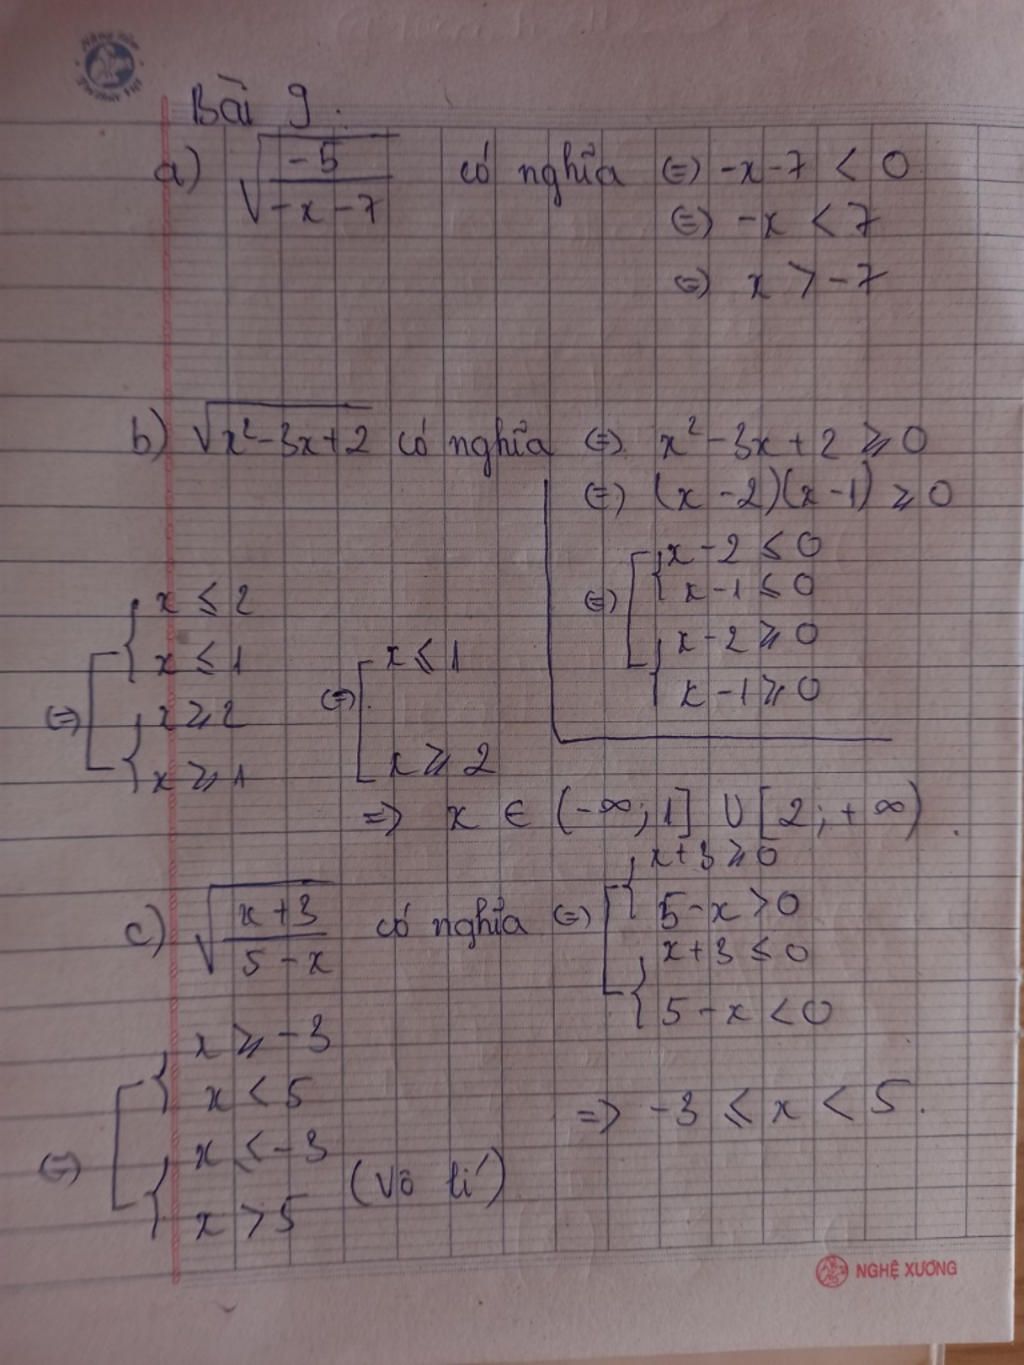 Bài 9.
a) √(-5/(-x-7)) có nghĩa (=) -x-7 < 0
(=) -x < 7
(=) x > -7
b) √(x²-3x+2) có nghĩa (=) x²-3x+2 ⩾ 0
(=) (x-2)(x-1) ⩾ 0
(=) [ { x-2 ≤ 0
x-1 ≤ 0
{ x-2 ⩾ 0
x-1 ⩾ 0
(=) [ { x ≤ 2
x ≤ 1
{ x ⩾ 2
x ⩾ 1
(=) [ x ≤ 1
x ⩾ 2
=> x ∈ (-∞; 1] ∪ [2; +∞).
c) √((x+3)/(5-x)) có nghĩa (=) [ { x+3 ⩾ 0
5-x > 0
{ x+3 ≤ 0
5-x < 0
(=) [ { x ⩾ -3
x < 5
{ x ≤ -3
x > 5
(vô lí)
=> -3 ≤ x < 5.
NGHỆ XƯƠNG